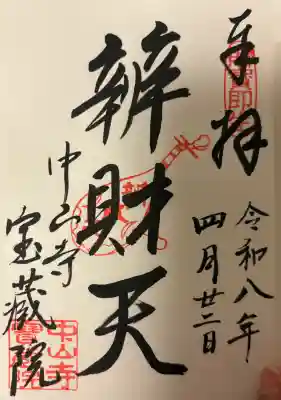 奉拝
令和八年
四月廿二日
辨財天
中山寺
宝蔵院
中山寺